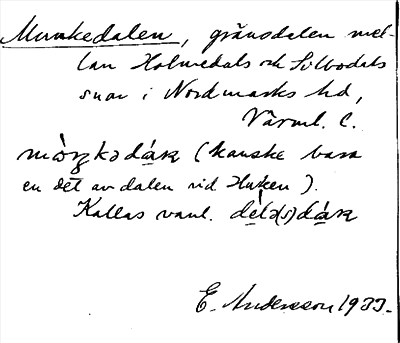 Munkedalen, gränsdalen mel-
lan Holmedals och Silbodals
snar i Nordmarks hd,
Värml. l.
(kanske bara
en del av dalen vid Huken).
Kallas vanl.
E. Andersson 1933.